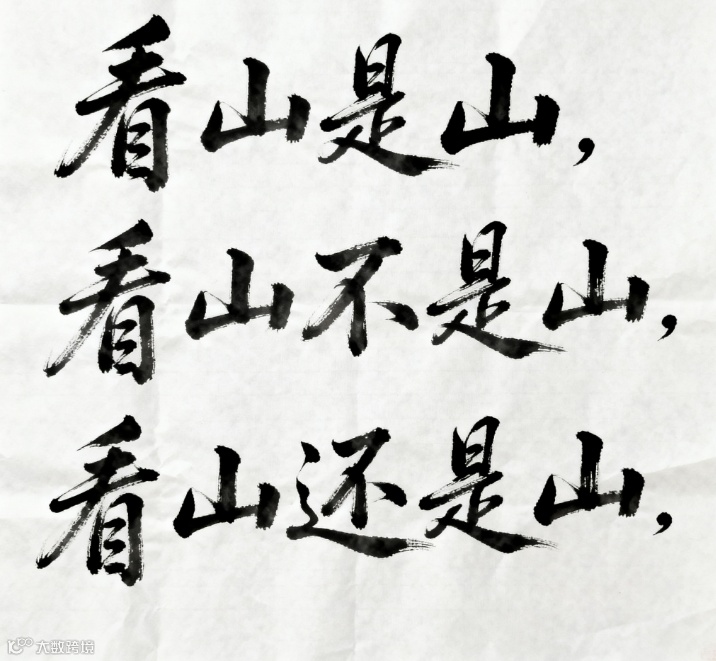 看山是山,
看山不是山,
看山还是山,
大数跨境